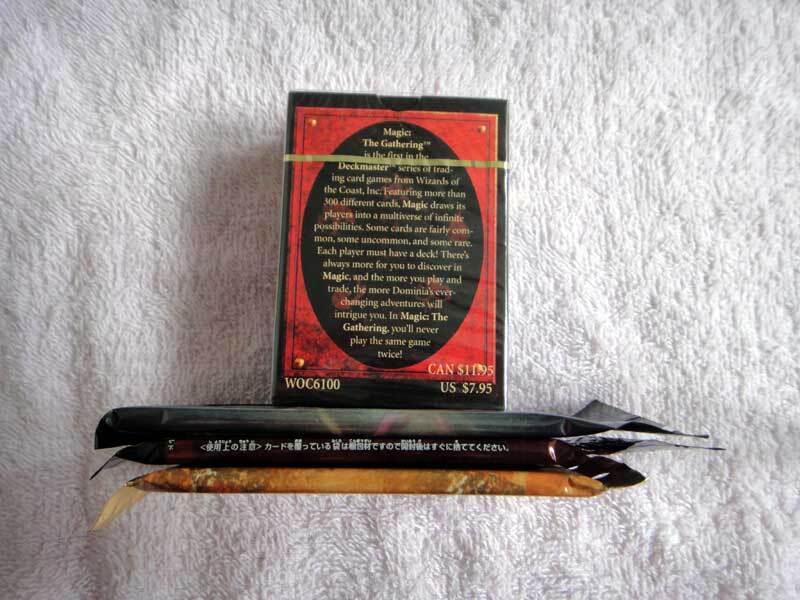 Magic:
The Gathering™
is the first in the
Deckmaster™ series of trad-
ing card games from Wizards of
the Coast, Inc. Featuring more than
300 different cards, Magic draws its
players into a multiverse of infinite
possibilities. Some cards are fairly com-
mon, some uncommon, and some rare.
Each player must have a deck! There's
always more for you to discover in
Magic, and the more you play and
trade, the more Dominia's ever-
changing adventures will
intrigue you. In Magic: The
Gathering, you'll never
play the same game
twice!
CAN $11.95
WOC6100
US $7.95
<使用上の注意>カードを覆っている袋は梱包材ですので開封後はすぐに捨ててください。